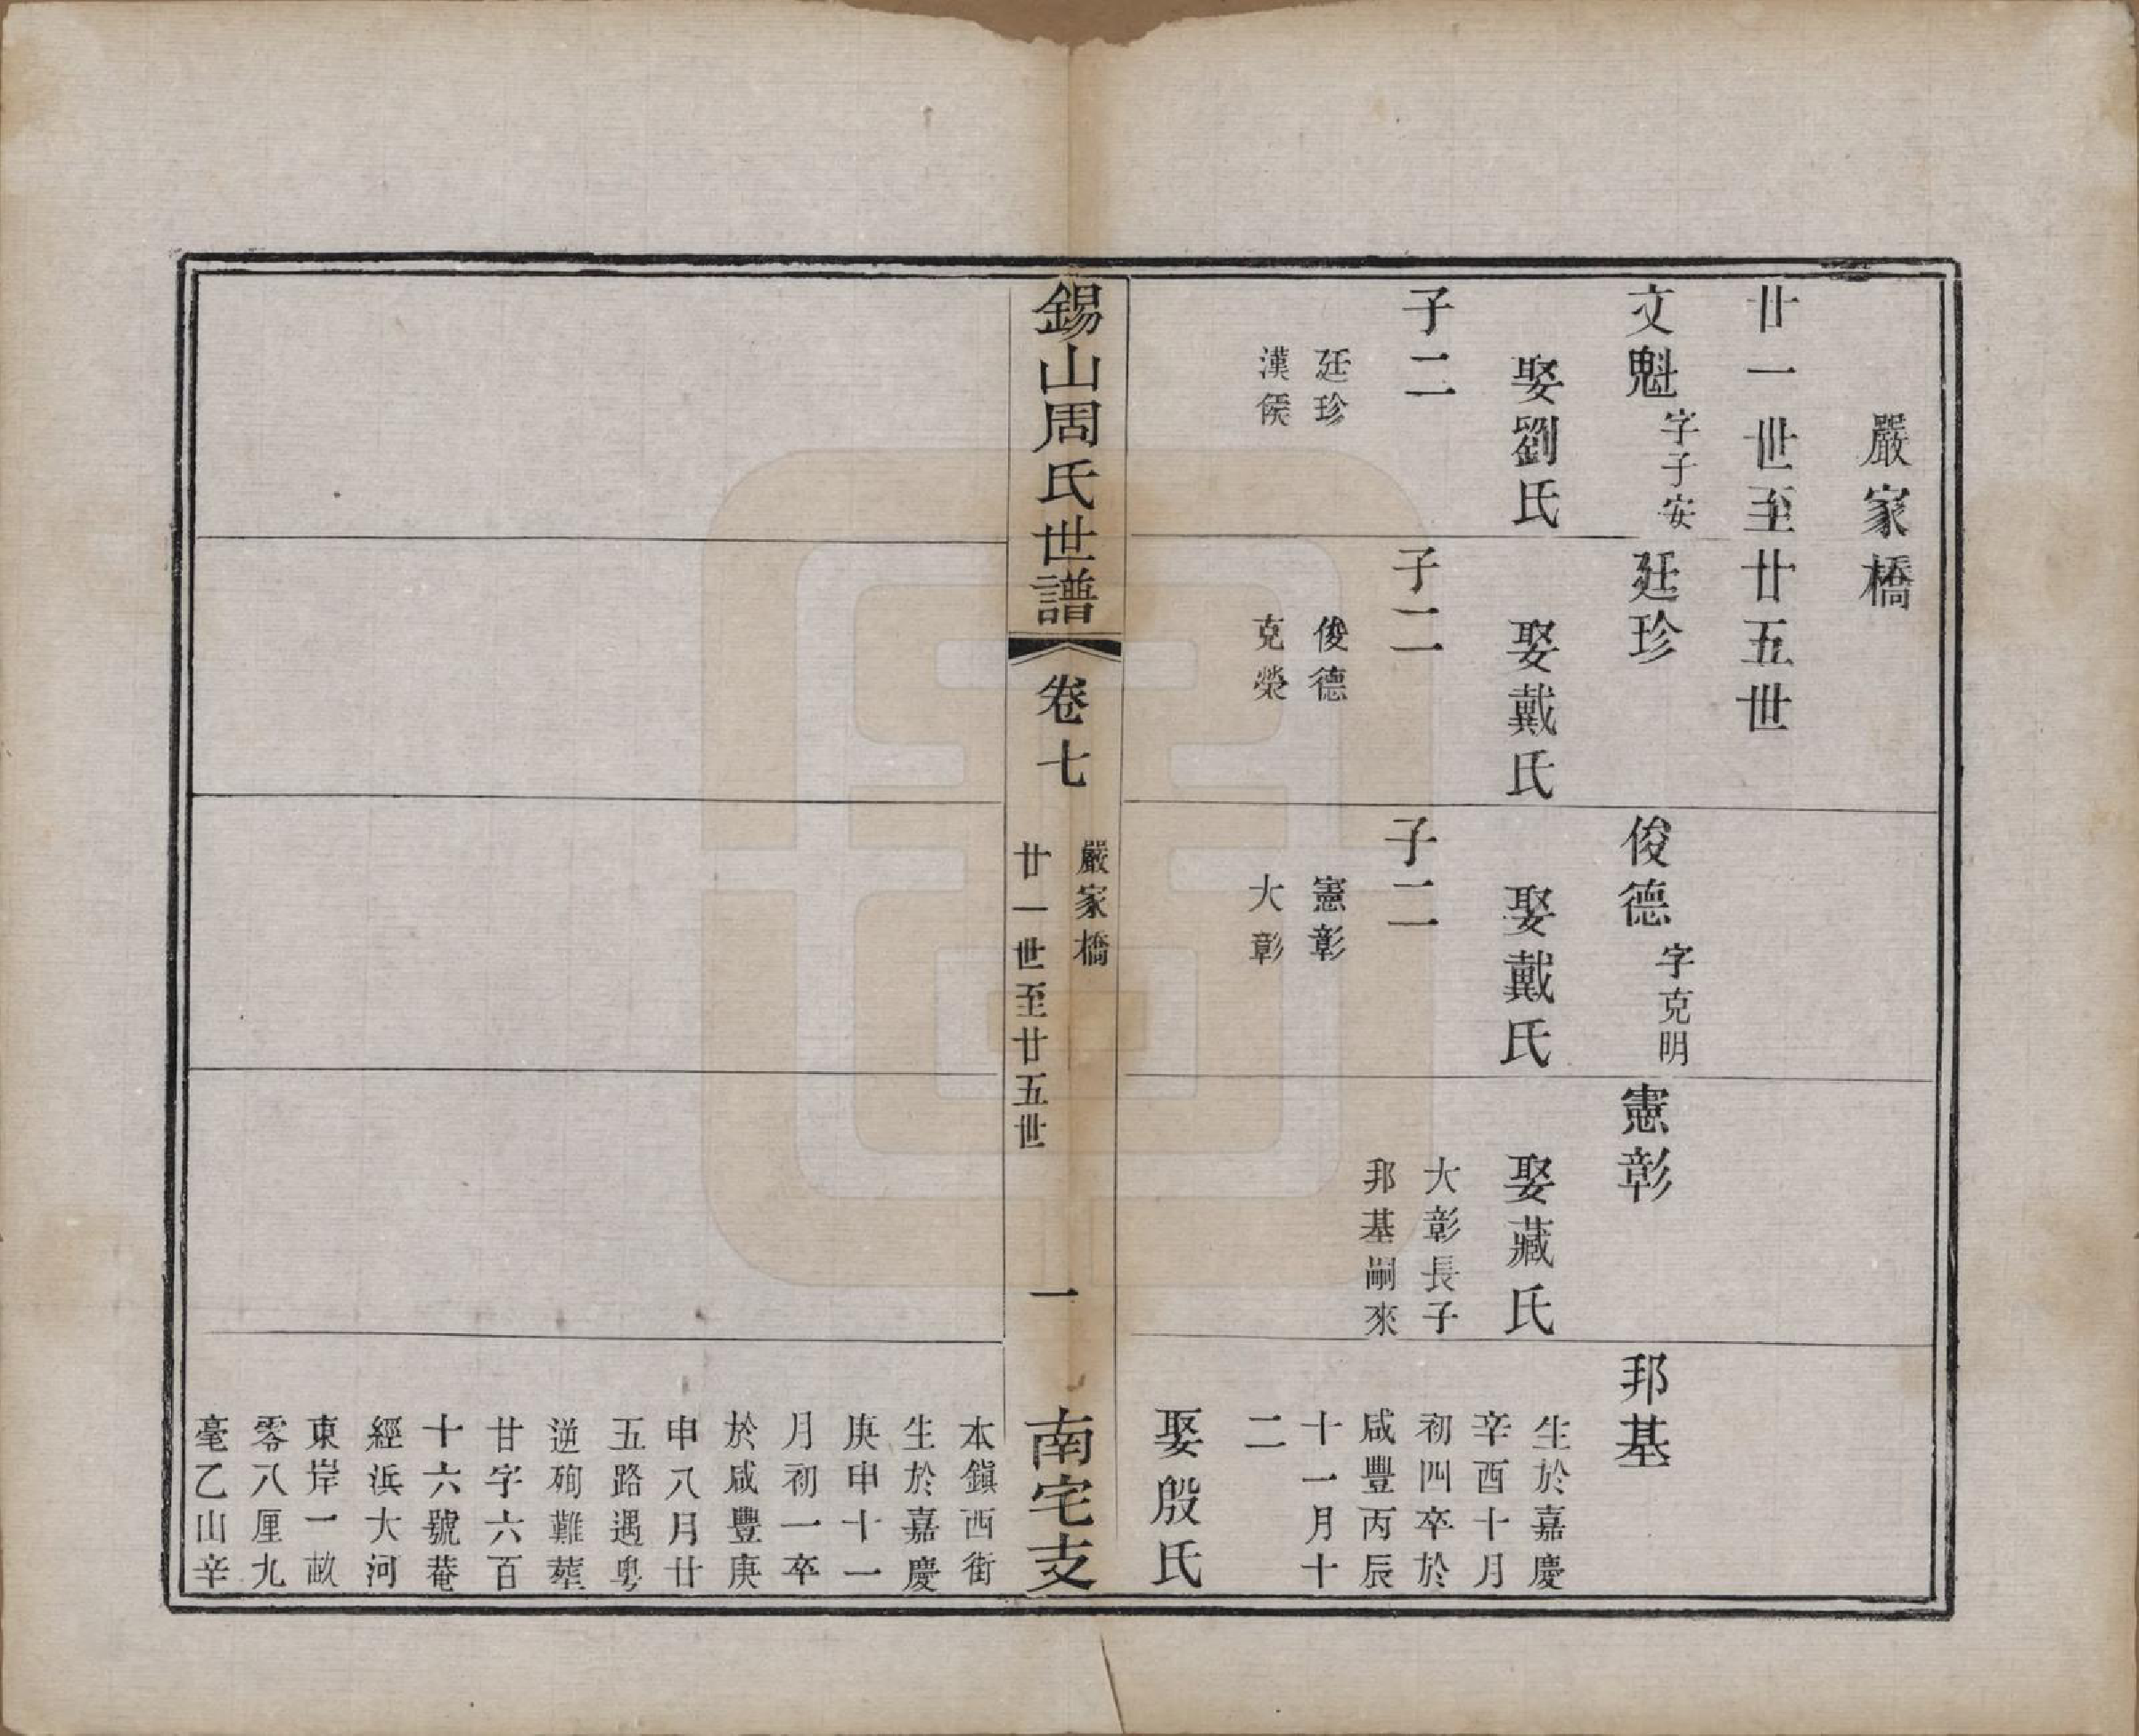 嚴家橋
廿一世至廿五世
文魁字子安
娶劉氏
子二
廷珍
漢侯
廷珍
娶戴氏
子二
俊德
克榮
俊德字克明
娶戴氏
子二
憲彰
大彰
憲彰
娶藏氏
大彰長子
邦基嗣來
邦基
生於嘉慶
辛酉十月
初四卒於
咸豐丙辰
十一月十
二
娶殷氏
錫山周氏世譜
卷七
嚴家橋
廿一世至廿五世
一
南宅支
本鎮西街
生於嘉慶
庚申十一
月初一卒
於咸豐庚
申八月廿
五路遇粵
逆殉難葬
甘字六百
十六號菴
經浜大河
東岸一畝
零八厘九
毫乙山辛